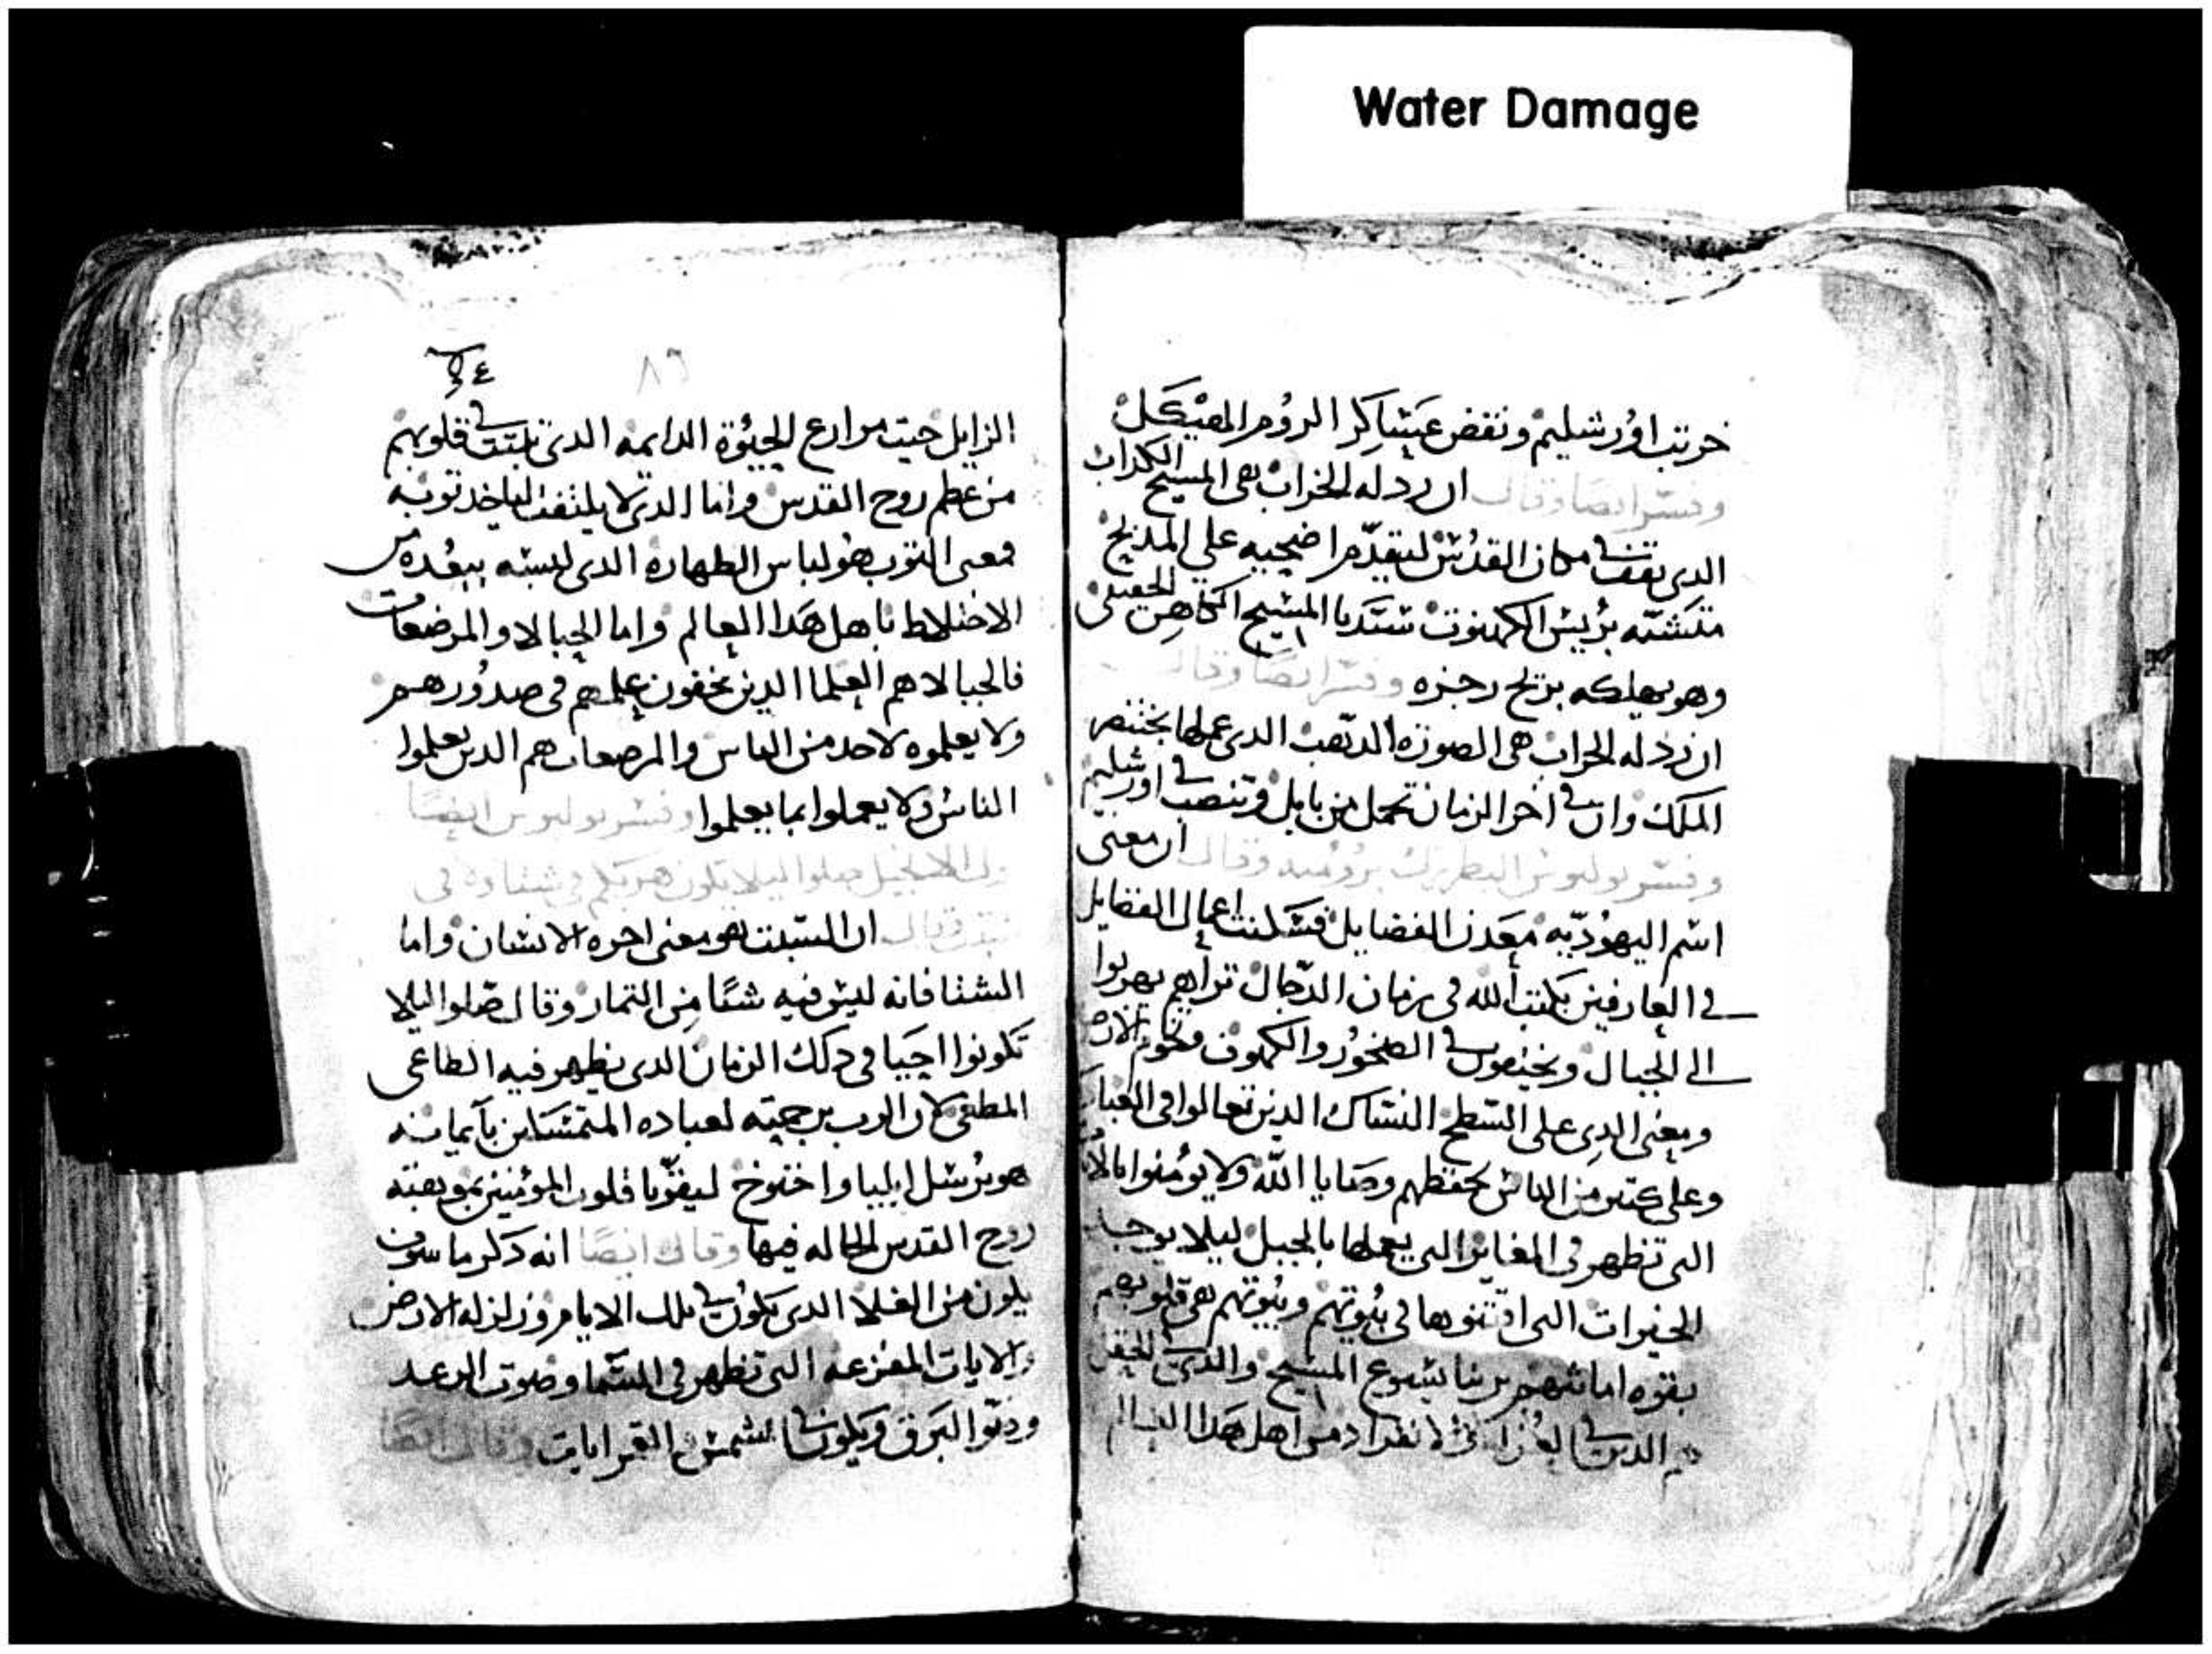 Water Damage
خربت اورشليم ونقض عسَاكر الروم الهيكل
وفسر ايضا وقال ان ردله الخراب هى المسيح الكداب
الدى يقف فى مكان القدس ليقدم اضحيه على المدبح
متشبه بريس الكهنوت سيدنا المسيح الكاهن الحقيقى
وهو يهلكه بريح رجزه وفسر ايضا وقال
ان ردله الخراب هى الصوره الدهب الدى عملها بختنصر
الملك وان فى اخر الزمان تحمل من بابل وتنصب فى اورشليم
وفسر بوليوس البطريرك بروميه وقال ان معنى
اسم اليهوديه معدن الفضايل فسكنت اعمال الفضايل
فى العارفين بكتب الله فى زمان الدجال تراهم يهربوا
الى الجبال ويختفون فى الصخور والكهوف وتخوم الارض
ومعنى الدى على السطح النساك الدين تعالوا فى العباد
وعلى كتير من الناس بحفظهم وصايا الله ولا يومنوا
التى تظهر فى المغاير التى يعملها بالجبل ليلا يوجد
الخيرات التى اقتنوها فى بيوتهم وبيوتهم هى قلوبهم
بقوه امانتهم بربنا يسوع المسيح والدى فى الحقل
هم الدين فى انفراد من اهل هدا العالم
٨٦
الزايل حيت مزارع الحيوة الدايمه الدى تبتت فى قلوبهم
من عظم روح القدس واما الدى لا يلتفت لياخد توبه
فمعنى التوب هو لباس الطهاره الدى لبسه ببعده من
الاختلاط باهل هدا العالم واما الحبالا والمرضعات
فالحبالا هم العلما الدين يخفون علمهم فى صدورهم
ولا يعلموه لاحد من الناس والمرضعات هم الدين يعلموا
الناس ولا يعملوا بما يعلموا وفسر بوليوس ايضا
الانجيل صلوا ليلا يكون هربكم فى شتا وه فى
سبت وقال ان السبت هو معنى اجره الانسان واما
الشتا فانه ليس فيه شيا من التمار وقال صلوا ليلا
تكونوا احيا فى دلك الزمان الدى يظهر فيه الطاغى
المطغى لان الرب برحمته لعباده المتمسكين بايمانه
هو يرسل ايليا واختوخ ليقويا قلوب المومنين بموهبته
روح القدس الحاله فيها وقال ايضا انه دكر ما سوف
يكون من الغلا الدى يكون فى تلك الايام وزلزله الارض
والايات المفزعه التى تظهر فى السما وصوت الرعد
ودتوا البرق ويكون فى الشمس والقمر ايات وقال ايضا